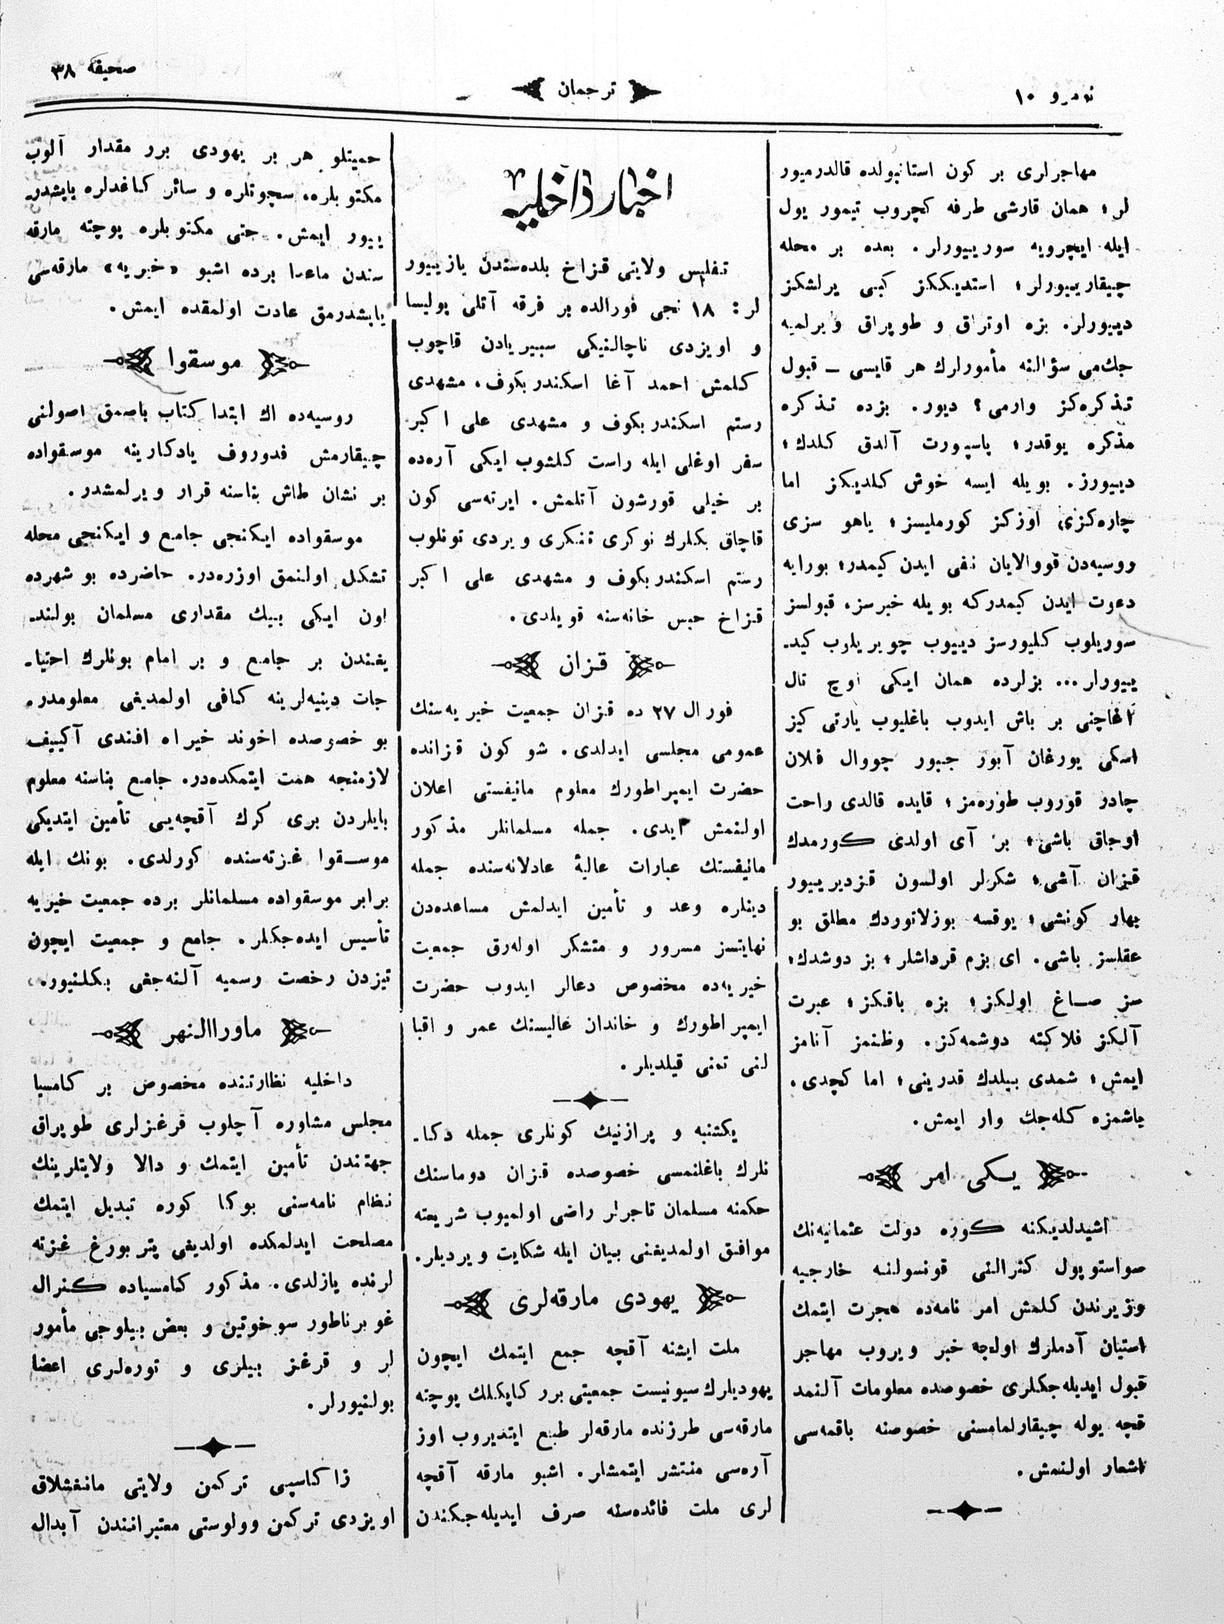 نومرو ١٠
ترجمان
صحیفه ٣٨
مهاجرلری بر کون استانبولده قالدرمیور
لر؛ همان قارشی طرفه کچروب تیمور یول
ایله ایچرویه سوریبورلر. بعده بر محله
چیقاریبورلر؛ استدیککز کبی یرلشکز
دیبورلر. بزه اوتراق و طوپراق ویرلمیه
جك‌می سؤالنه مأمورلرك هر قایسی ـ قبول
تذکره‌کز وارمی؟ دیور. بزده تذکره
مذکره یوقدر؛ پاسپورت آلدق کلدك؛
دیبورز. بویله ایسه خوش کلدیکز اما
چاره‌کزی اوزکز کورملیسز؛ یاهو سزی
روسیه‌دن قووالایان نفی ایدن کیمدر؛ بورایه
دعوت ایدن کیمدرکه بویله خبرسز، قبولسز
سوریلوب کلیورسز دیبوب چویریلوب کید-
یبورلر... بزلرده همان ایکی اوچ تال
آغاچنی بر باش ایدوب باغلیوب یارتی کیز
اسکی یورغان آبوز جبور چووال فلان
چادر قوروب طوره‌مز؛ قایده قالدی راحت
اوجاق باشی؛ بر آی اولدی کورمدك
قزان آشی؛ شکرلر اولسون قزدیریبور
بهار کونشی؛ یوقسه بوزلانوردك مطلق بو
عقلسز باشی. ای بزم قرداشلر؛ بز دوشدك؛
سز صاغ اولکز؛ بزه باقکز؛ عبرت
آلکز فلاکته دوشمه‌کز. وطنمز آنامز
ایمش؛ شمدی بیلدك قدرینی؛ اما کچدی.
یاشمزه کله‌جك وار ایمش.
یکی امر
اشیدلدیکنه کوره دولت عثمانیه‌نك
صواستوپول کنرالنی قونسولنه خارجیه
وزیرندن کلمش امر نامه‌ده هجرت ایتمك
استیان آدملرك اولجه خبر ویروب مهاجر
قبول ایدیله‌جکلری خصوصده معلومات آلنمد
قچه یوله چیقارلمامسنی خصوصنه باقمه‌سی
اشعار اولنمش.
اخبار داخلیه
تفلیس ولایتی قزاخ بلده‌سندن یازیبور
لر: ١٨ نجی فورالده بر فرقه آتلی پولیسا
و اویزدی ناچالنیکی سبیریادن قاچوب
کلمش احمد آغا اسکندربکوف، مشهدی
رستم اسکندربکوف و مشهدی علی اکبر
سفر اوغلی ایله راست کلشوب ایکی آره‌ده
بر خیلی قورشون آتلمش. ایرته‌سی کون
قاچاق بکلرك نوکری تنکری ویردی توتلوب
رستم اسکندربکوف و مشهدی علی اکبر
قزاخ حبس خانه‌سنه قویلدی.
قزان
فورال ٢٧ ده قزان جمعیت خیریه‌سنك
عمومی مجلسی ایدلدی. شو کون قزانده
حضرت ایمپراطورك معلوم مانیفستی اعلان
اولنمش ایدی. جمله مسلمانلر مذکور
مانیفستك عبارات عالیهٔ عادلانه‌سنده جمله
دینلره وعد و تأمین ایدلمش مساعده‌دن
نهایتسز مسرور و متشکر اوله‌رق جمعیت
خیریه‌ده مخصوص دعالر ایدوب حضرت
ایمپراطورك و خاندان عالیسنك عمر و اقبا
لنی تمنی قیلدیلر.
یکشنبه و پرازنیك کونلری جمله دکا-
نلرك باغلنمسی خصوصده قزان دوماسنك
حکمنه مسلمان تاجرلر راضی اولمیوب شریعته
موافق اولمدیغنی بیان ایله شکایت ویردیلر.
یهودی مارقه‌لری
ملت ایشنه آقچه جمع ایتمك ایچون
یهودیلرك سیونیست جمعیتی برر کاپکلك پوچته
مارقه‌سی طرزنده مارقه‌لر طبع ایتدیروب اوز
آره‌سی منتشر ایتمشلر. اشبو مارقه آقچه
لری ملت فائده‌سنه صرف ایدیله‌جکندن
حمیتلو هر بر یهودی برر مقدار آلوب
مکتوبلره، سچوتلره و سائر کاغدلره یاپشدر-
یبور ایمش. حتی مکتوبلره پوچته مارقه
سندن ماعدا برده اشبو «خبریه» مارقه‌سی
یاپشدرمق عادت اولمقده ایمش.
موسقوا
روسیه‌ده اك ابتدا کتاب باصمق اصولنی
چیقارمش فدوروف یادکارینه موسقواده
بر نشان طاش بناسنه قرار ویرلمشدر.
موسقواده ایکنجی جامع و ایکنجی محله
تشکل اولنمق اوزره‌در. حاضرده بو شهرده
اون ایکی بیك مقداری مسلمان بولند-
یغندن بر جامع و بر امام بونلرك احتیا-
جات دینیه‌لرینه کافی اولمدیغی معلومدر.
بو خصوصده اخوند خیراه افندی آکییف
لازمنجه همت ایتمکده‌در. جامع بناسنه معلوم
بایلردن بری کرك آقچه‌یی تأمین ایتدیکی
موسقوا غزته‌سنده کورلدی. بونك ایله
برابر موسقواده مسلمانلر برده جمعیت خیریه
تأسیس ایده‌جکلر. جامع و جمعیت ایچون
تیزدن رخصت رسمیه آلنه‌جغی بکلنیور.
ماوراالنهر
داخلیه نظارتنده مخصوص بر کامسیا
مجلس مشاوره آچلوب قرغزلری طوپراق
جهتندن تأمین ایتمك و دالا ولایتلرینك
نظام نامه‌سنی بوکا کوره تبدیل ایتمك
مصلحت ایدلمکده اولدیغی پتربورغ غزته
لرنده یازلدی. مذکور کامسیاده کنرال
غوبرناطور سوخوتین و بعض بیلوجی مأمور
لر و قرغز بیلری و توره‌لری اعضا
بولنیورلر.
زاکاسپی ترکمن ولایتی مانغشلاق
اویزدی ترکمن وولوستی معتبرانندن آبدال